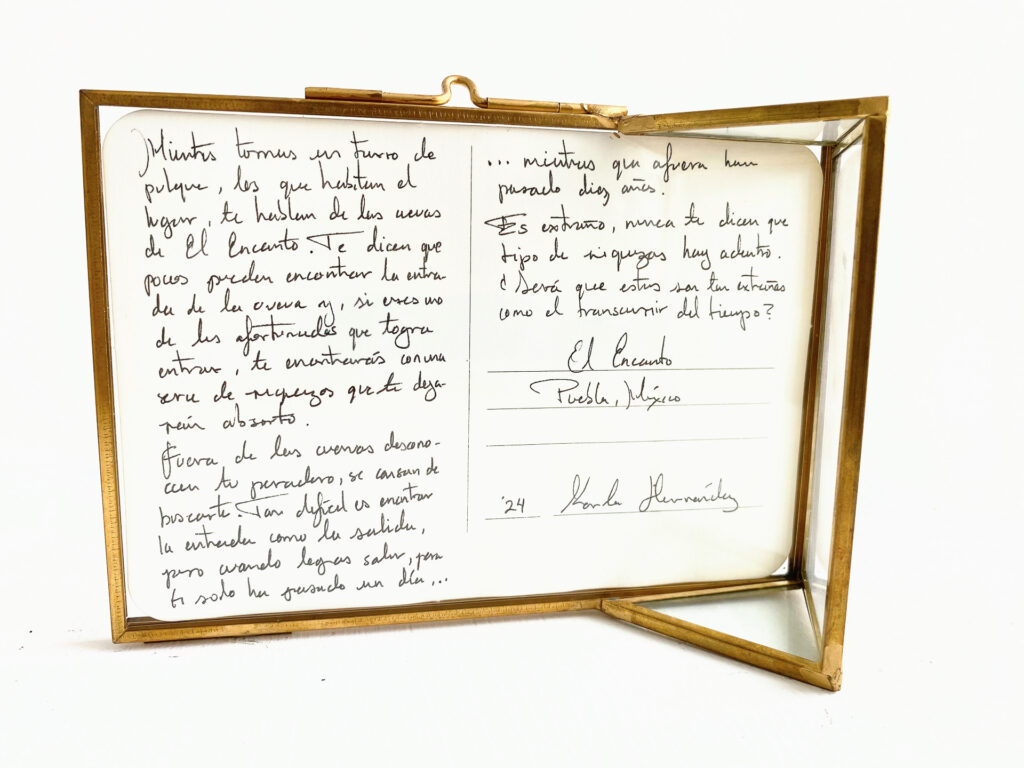 Mientras tomas un tarro de
pulque, los que habitan el
lugar, te hablan de las cuevas
de El Encanto. Te dicen que
pocos pueden encontrar la entra-
da de la cueva y, si eres uno
de los afortunados que logra
entrar, te encontrarás con una
serie de riquezas que te deja-
rán absorto.
Fuera de las cuevas descono-
cen tu paradero, se cansan de
buscarte. Tan difícil es encontrar
la entrada como la salida,
pero cuando logras salir, para
ti solo ha pasado un día,...
... mientras que afuera han
pasado diez años.
Es extraño, nunca te dicen que
tipo de riquezas hay adentro.
¿Será que estas son tan extrañas
como el transcurrir del tiempo?
El Encanto
Puebla, México
'24 Karla Hernández